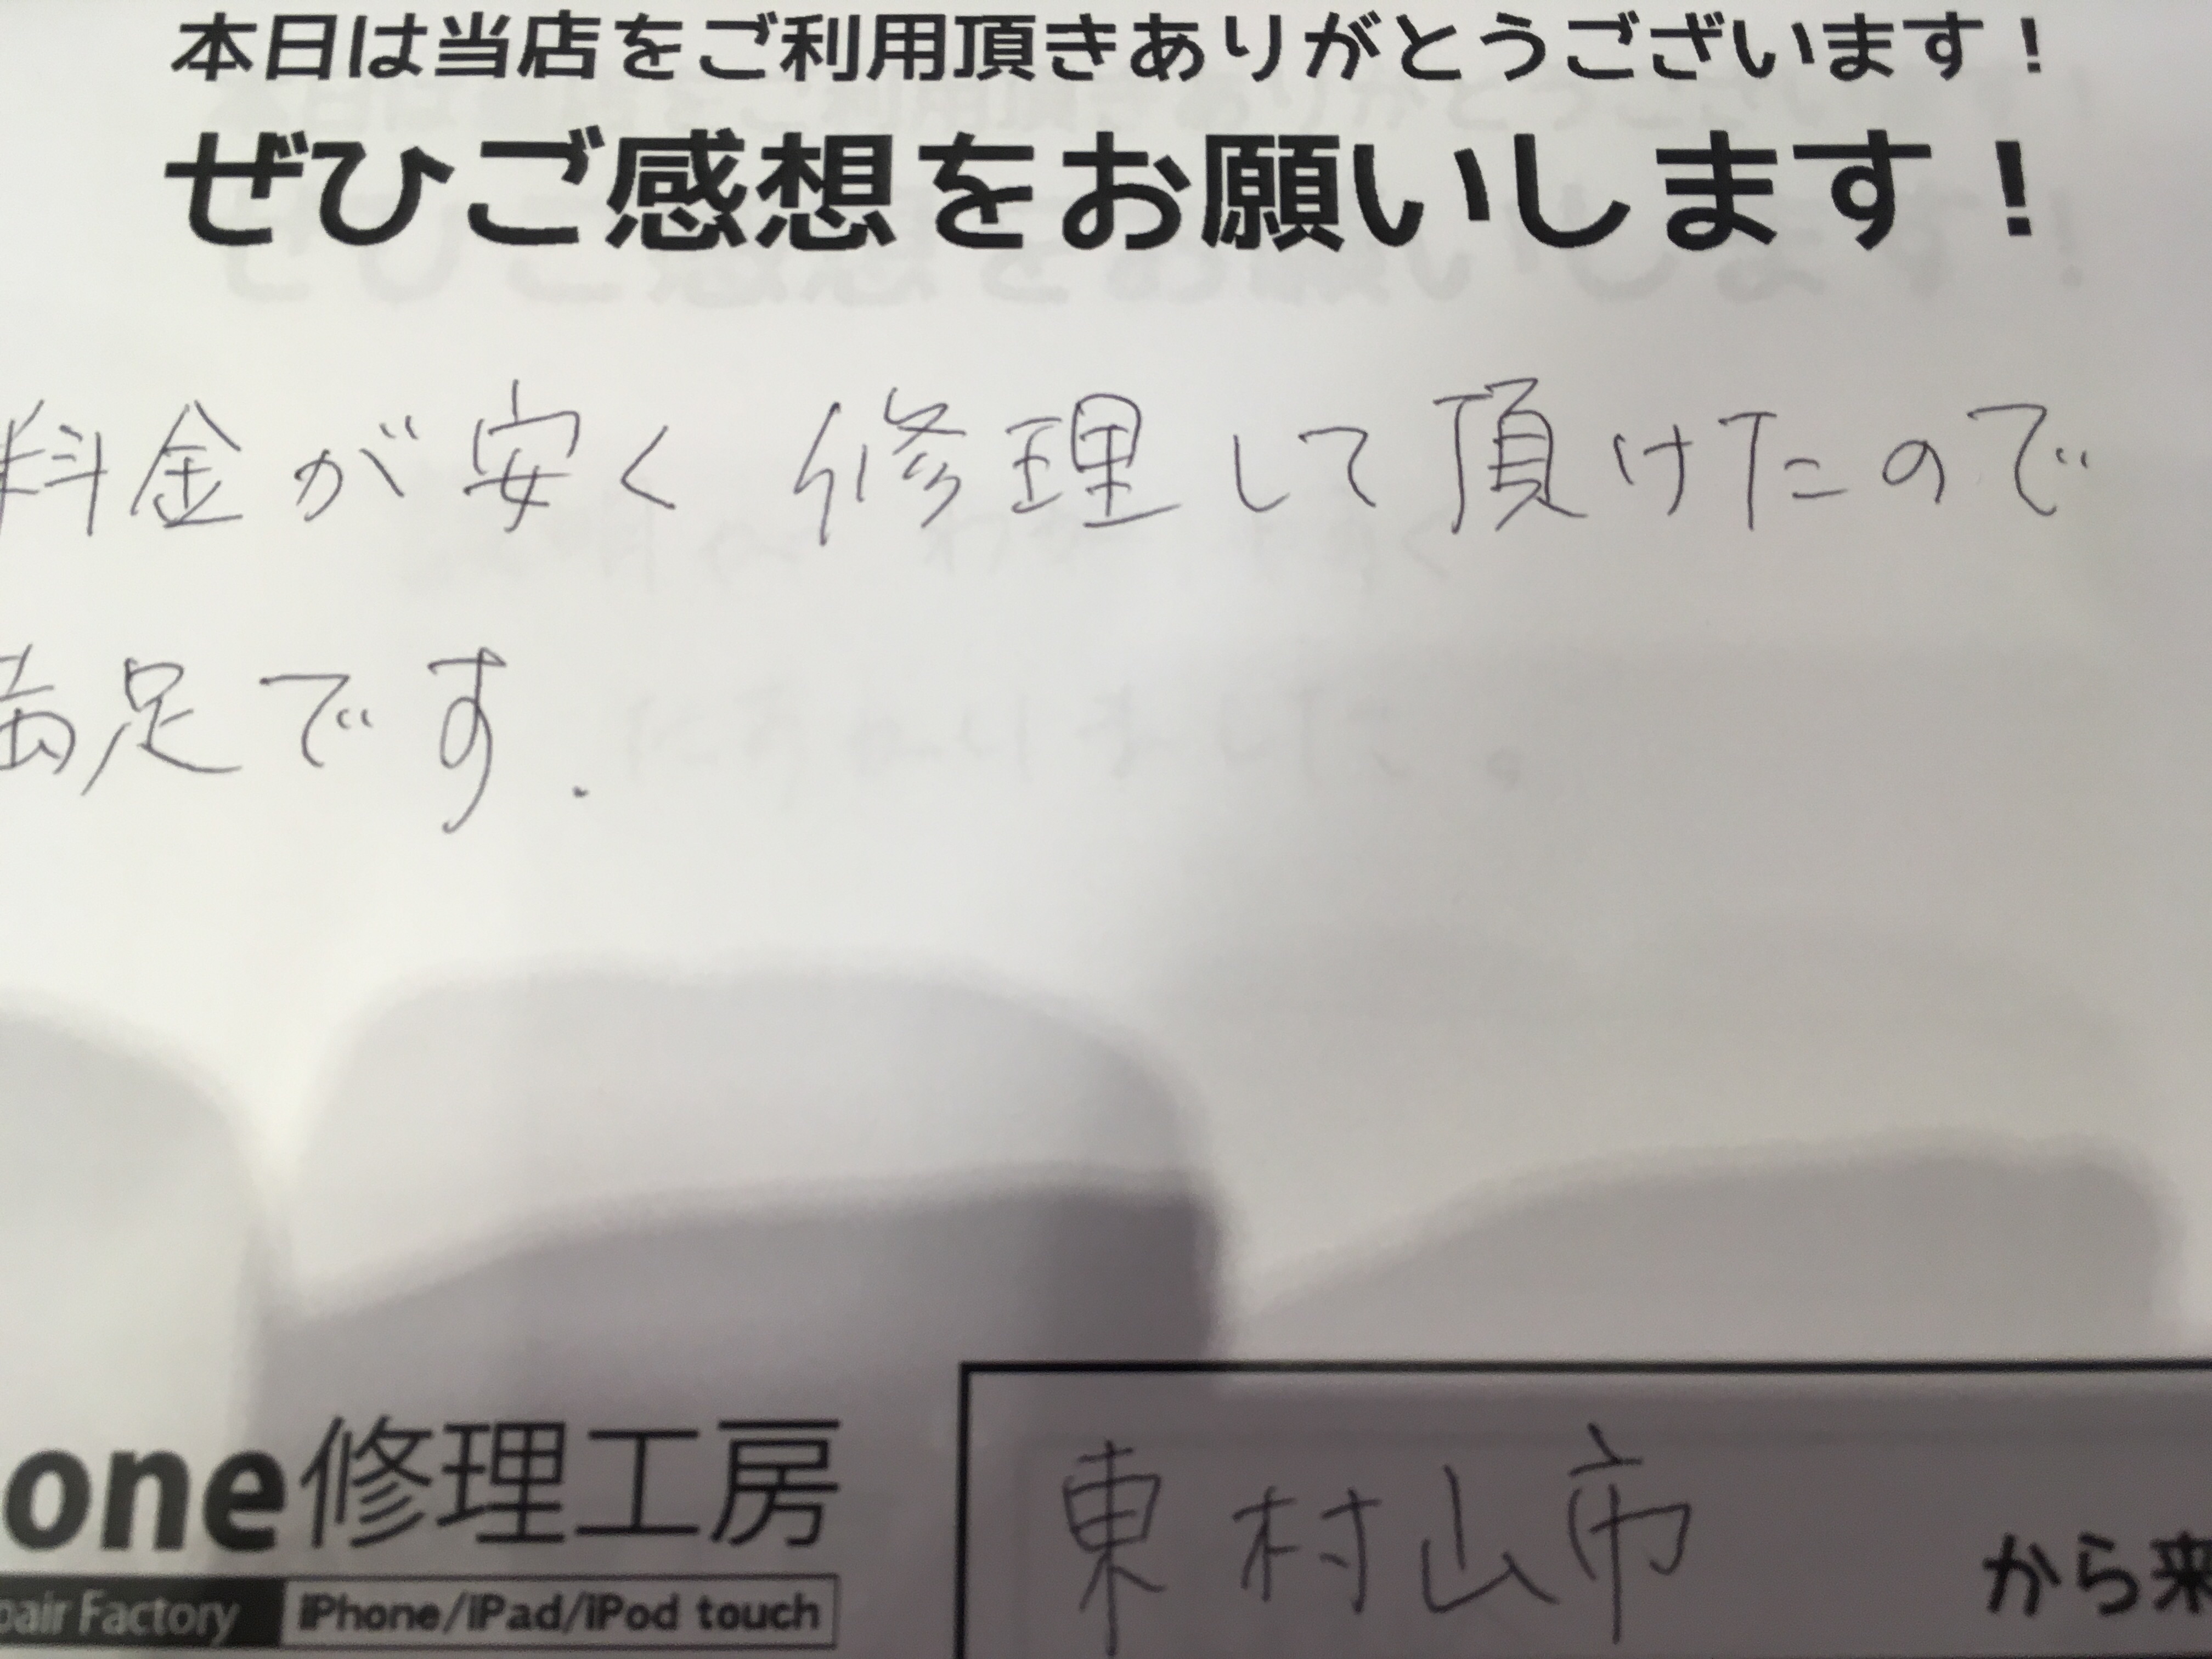 本日は当店をご利用頂きありがとうございます！
ぜひご感想をお願いします！
料金が安く 修理して頂けたので
満足です.
one修理工房
pair Factory iPhone/iPad/iPod touch
東村山市 から来